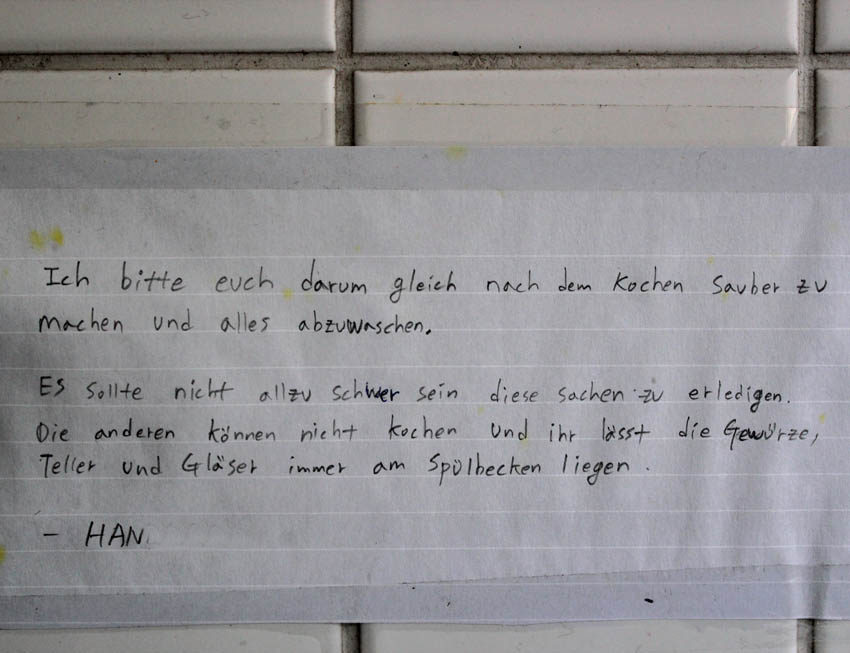 Ich bitte euch darum gleich nach dem kochen sauber zu
machen und alles abzuwaschen.
Es sollte nicht allzu schwer sein diese sachen zu erledigen.
Die anderen können nicht kochen und ihr lässt die Gewürze,
Teller und Gläser immer am Spülbecken liegen.
- HAN